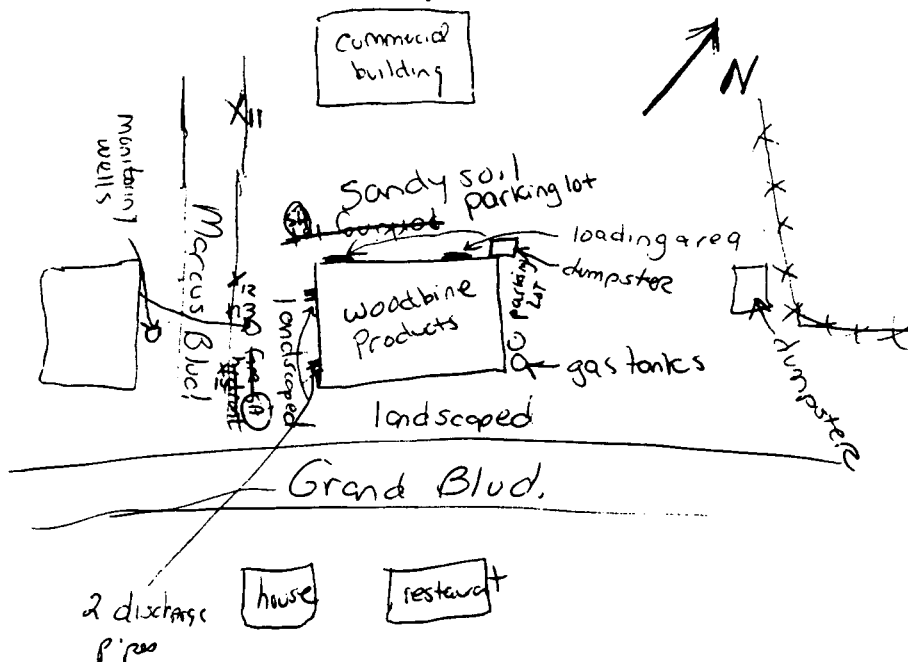 commercial
building
N
11
monitorinl
wells
Marcus Blvd
Sandy soil
parking lot
loading area
dumpster
landscaped
Woodbine
Products
parking
LOT
gas tanks
dumpster
landscaped
Grand Blvd.
house
restaurat
2 discharge
pipes